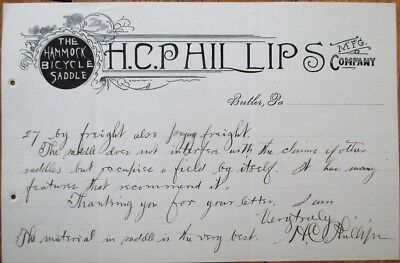 THE
HAMMOCK
BICYCLE
SADDLE
H.C. PHILLIPS
MFG.
COMPANY
Butler, Pa
27 by freight also freight.
The saddle does not interfere with the claims of other
saddles but occupies a field by itself. It has many
features that recommend it.
Thanking you for your letter, I am
Very truly
The material in saddle is the very best. H.C. Phillips